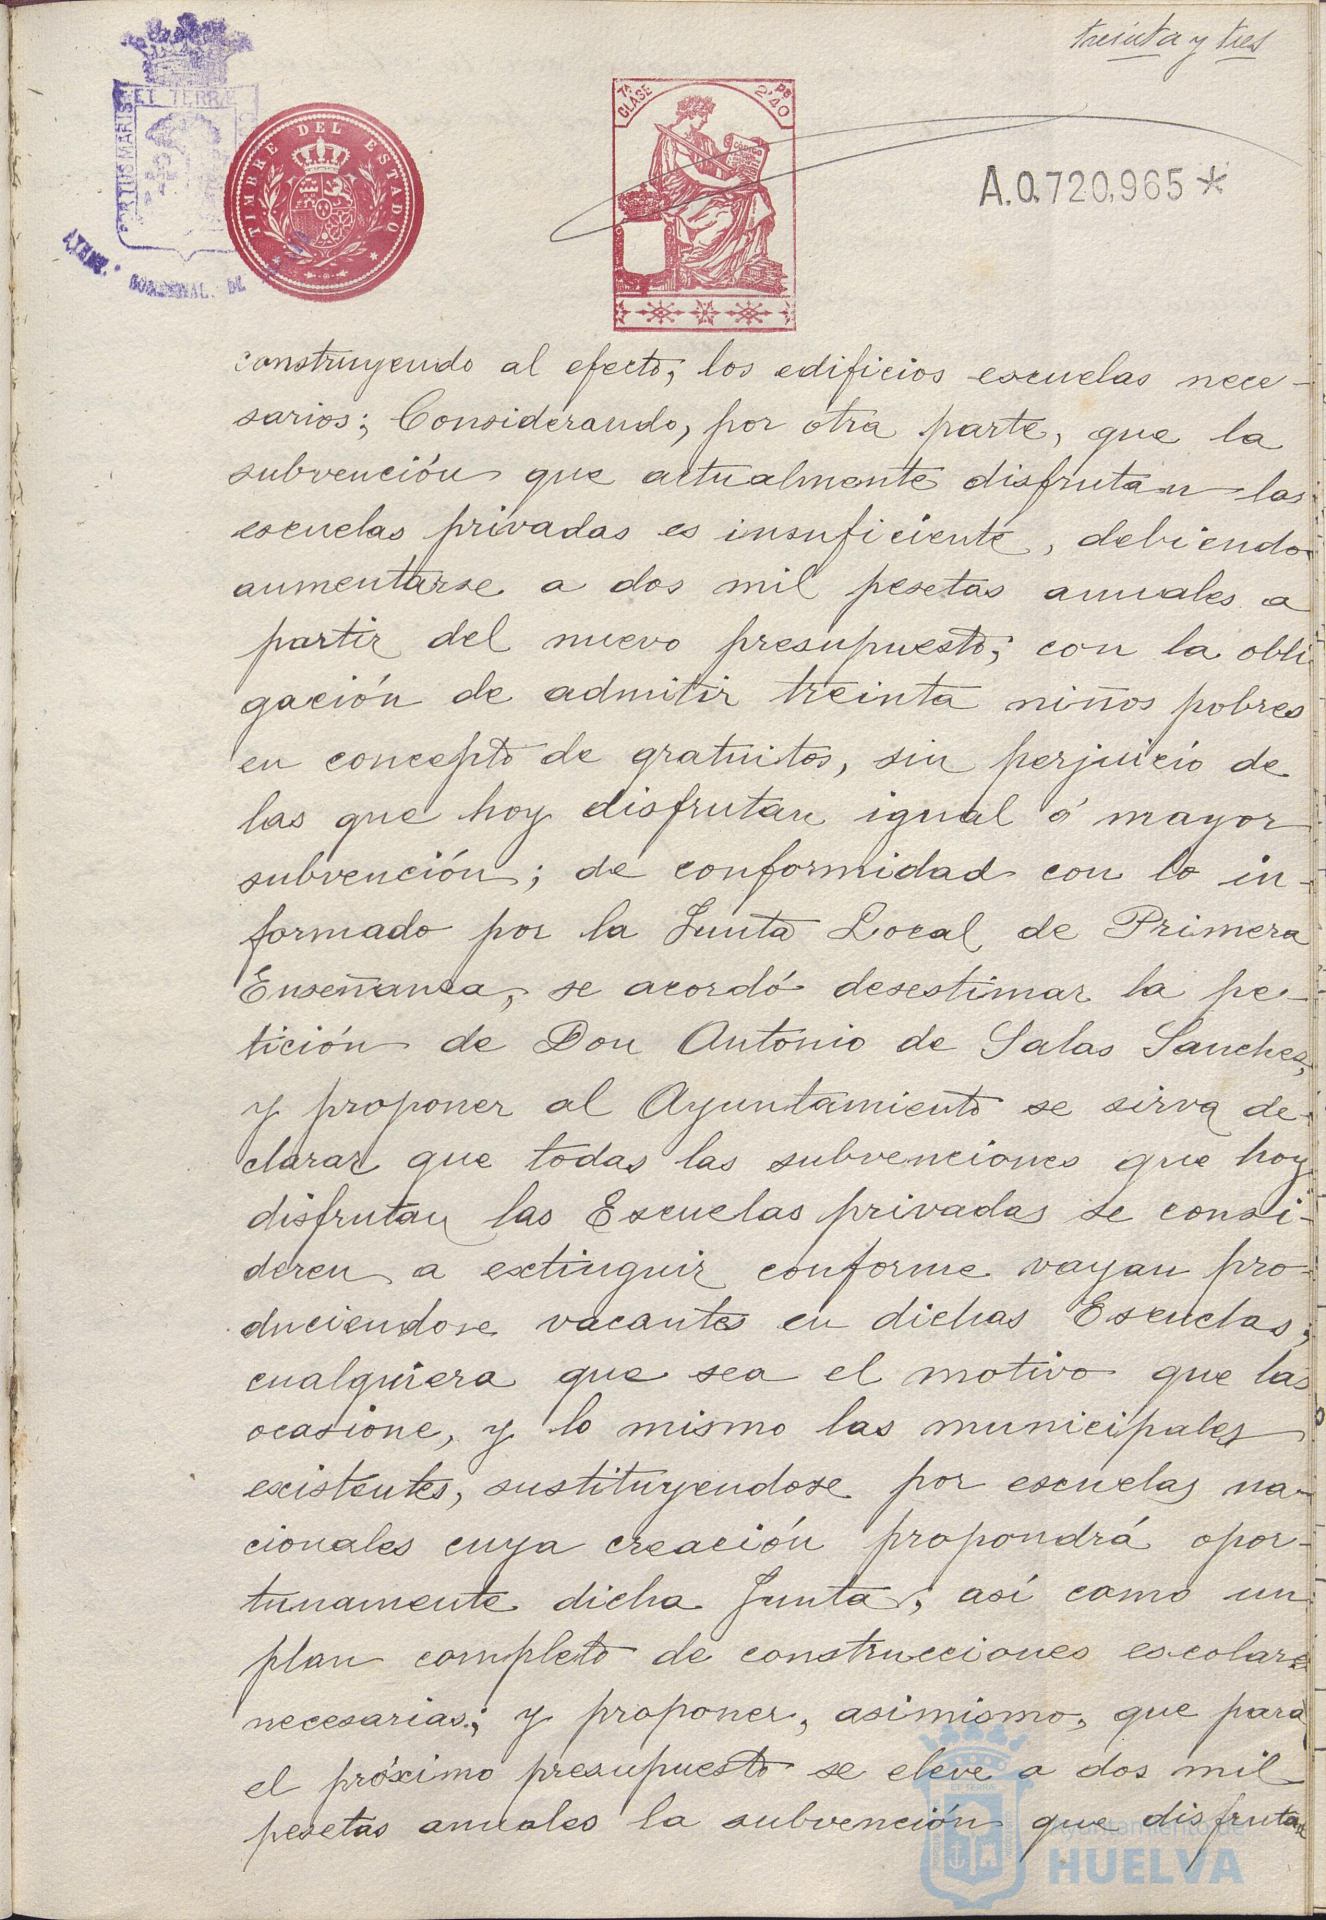 treinta y tres
PORTUS MARIS ET TERRÆ
TIMBRE DEL ESTADO
7ª CLASE
2'40
CÓDIGO
A.0.720,965*
construyendo al efecto, los edificios escuelas nece-
sarios; Considerando, por otra parte, que la
subvención que actualmente disfrutan las
escuelas privadas es insuficiente, debiendo
aumentarse a dos mil pesetas anuales a
partir del nuevo presupuesto, con la obli
gación de admitir treinta niños pobres
en concepto de gratuitos, sin perjuicio de
las que hoy disfrutan igual ó mayor
subvención; de conformidad con lo in-
formado por la Junta Local de Primera
Enseñanza, se acordó desestimar la pe-
tición de Don Antonio de Salas Sanchez,
y proponer al Ayuntamiento se sirva de-
clarar que todas las subvenciones que hoy
disfrutan las Escuelas privadas se consi-
deren a extinguir conforme vayan pro-
duciendose vacantes en dichas Escuelas,
cualquiera que sea el motivo que las
ocasione, y lo mismo las municipales
existentes, sustituyendose por escuelas na-
cionales cuya creación propondrá opor-
tunamente dicha Junta, así como un
plan completo de construcciones escolares
necesarias; y proponer, asimismo, que para
el próximo presupuesto se eleve a dos mil
pesetas anuales la subvención que disfrutan
Ayuntamiento de
HUELVA